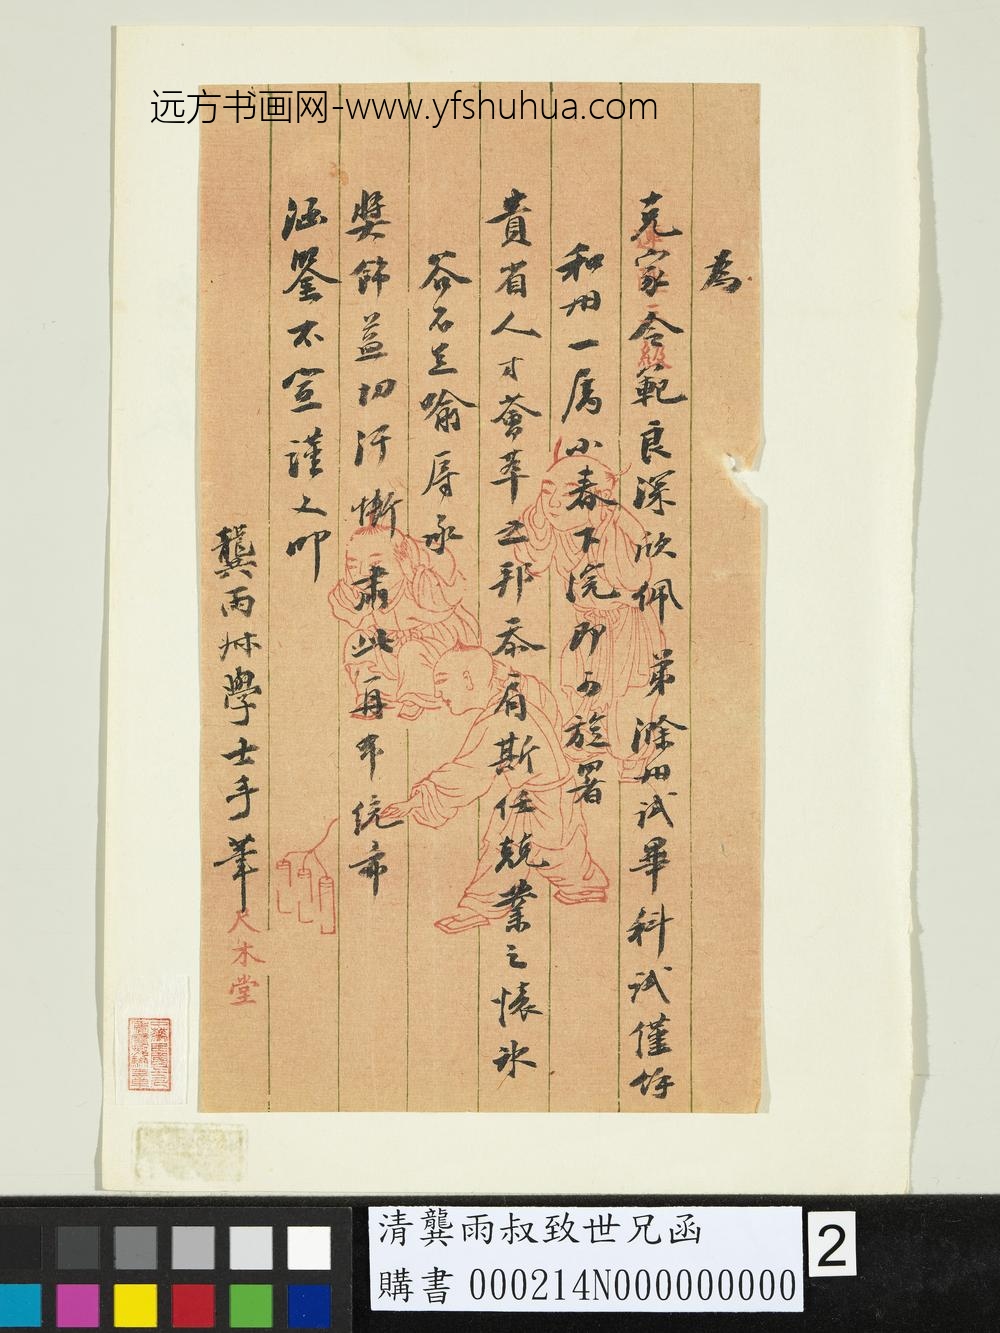 远方书画网-www.yfshuhua.com
為
克家令範良深欣佩弟滁州試畢科試僅餘
和州一屬小春下浣即可旋署
貴省人才薈萃之邦忝肩斯任兢業之懷冰
谷不足喻辱承
獎飾益切汗慚肅此再布統希
涵鑒不宣謹又叩
龔雨叔學士手筆
尺木堂
清龔雨叔致世兄函
購書 000214N000000000
2